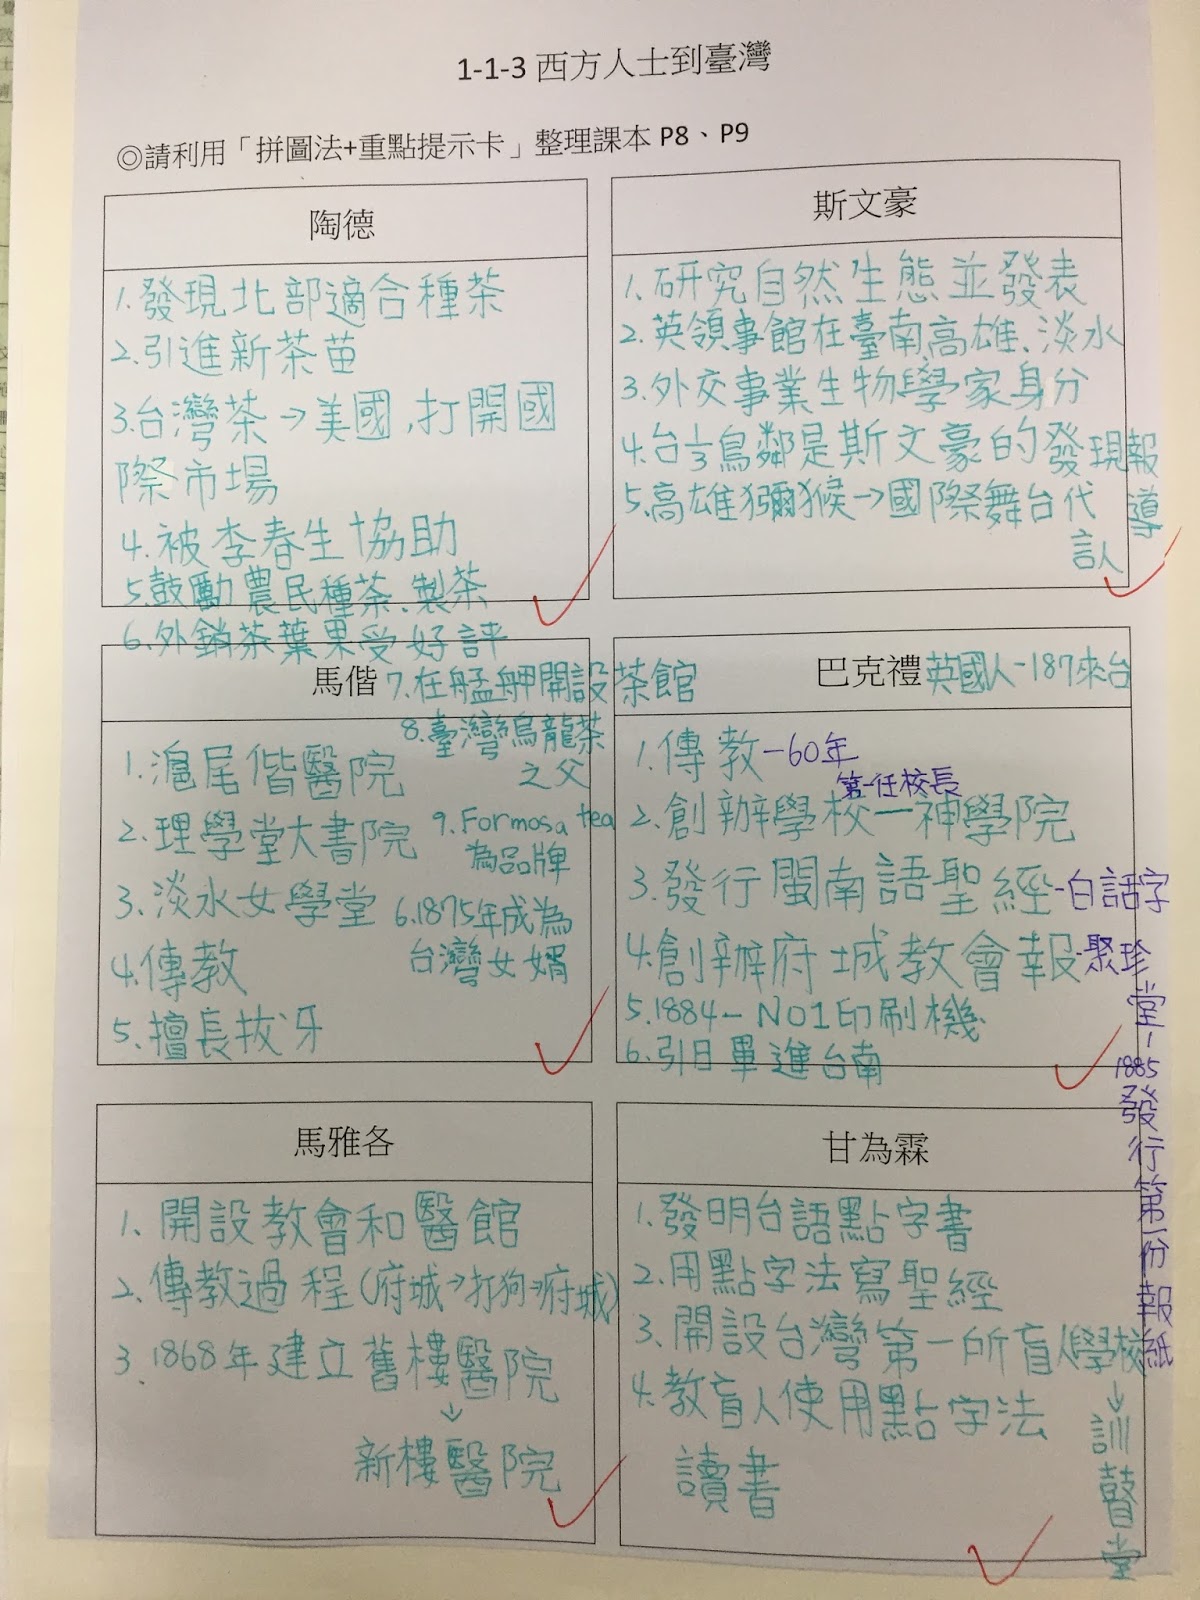 1-1-3 西方人士到臺灣
◎請利用「拼圖法+重點提示卡」整理課本 P8、P9
陶德
1.發現北部適合種茶
2.引進新茶苗
3.台灣茶→美國,打開國
際市場
4.被李春生協助
5.鼓勵農民種茶、製茶
6.外銷茶葉果受好評
7.在艋舺開設茶館
8.臺灣烏龍茶
之父
9.Formosa tea
為品牌
斯文豪
1.研究自然生態並發表
2.英領事館在臺南、高雄、淡水
3.外交事業生物學家身分
4.台1/3鳥類是斯文豪的發現報
導
5.高雄獼猴→國際舞台代
言人
馬偕
1.滬尾偕醫院
2.理學堂大書院
3.淡水女學堂
4.傳教
5.擅長拔牙
6.1875年成為
台灣女婿
巴克禮 英國人-187來台
1.傳教-60年
第一任校長
2.創辦學校-神學院
3.發行閩南語聖經-白話字
4.創辦府城教會報-聚珍
堂-1885發行第一份報紙
5.1884-NO1印刷機
6.引日軍進台南
馬雅各
1.開設教會和醫館
2.傳教過程(府城→打狗→府城)
3.1868年建立舊樓醫院
↓
新樓醫院
甘為霖
1.發明台語點字書
2.用點字法寫聖經
3.開設台灣第一所盲人學校
→訓瞽堂
4.教盲人使用點字法
讀書